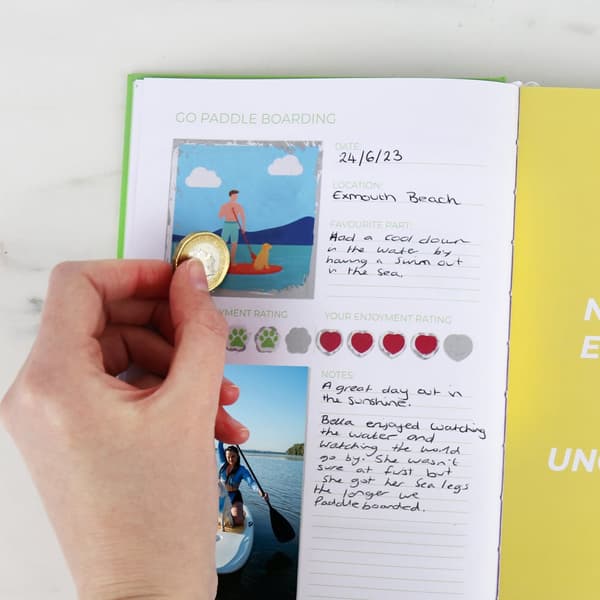 GO PADDLE BOARDING
DATE:
24/6/23
LOCATION:
Exmouth Beach
FAVOURITE PART:
Had a cool down
in the water by
having a swim out
in the sea.
YMENT RATING
YOUR ENJOYMENT RATING
NOTES:
A great day out in
the sunshine.
Bella enjoyed watching
the water and
watching the world
go by. She wasn't
sure at first but
she got her sea legs
the longer we
Paddleboarded.
N
E
UNC